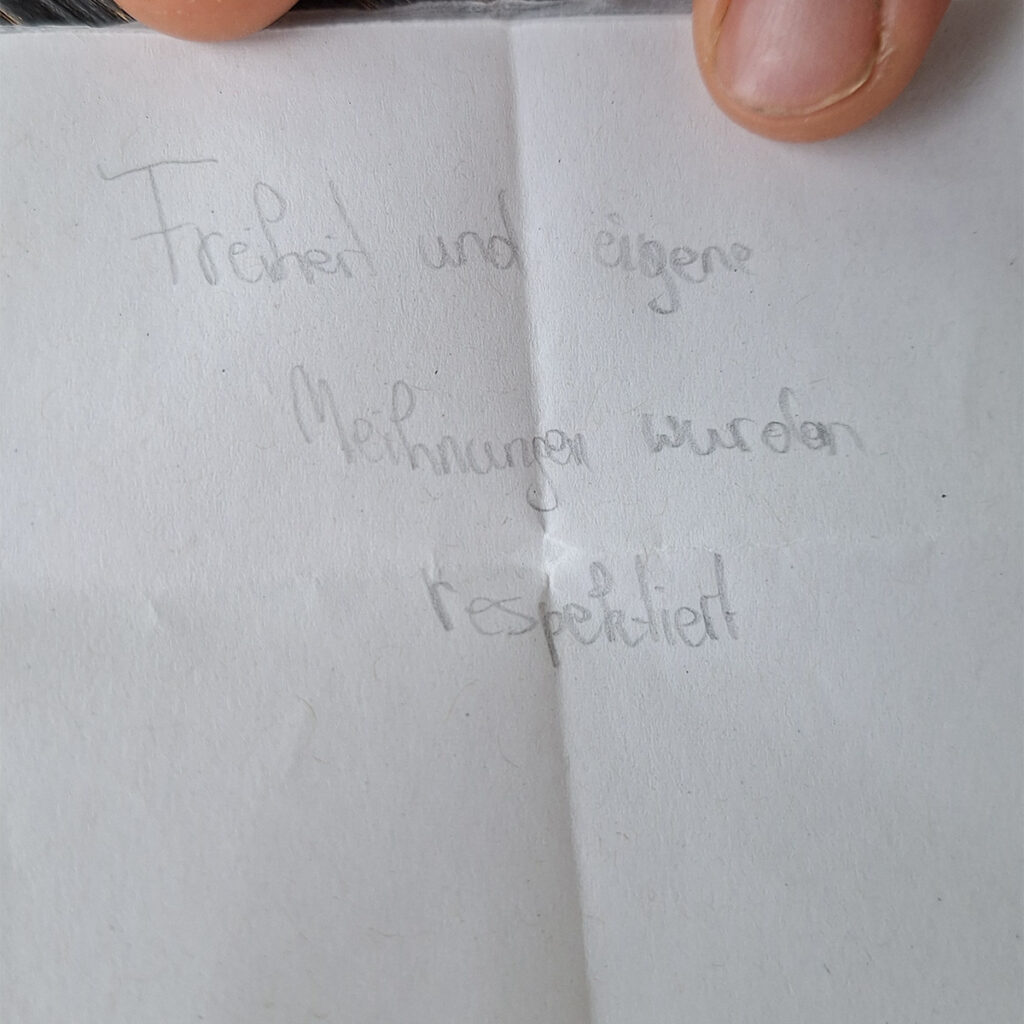 Freiheit und eigene
Meihnungen wurden
respektiert